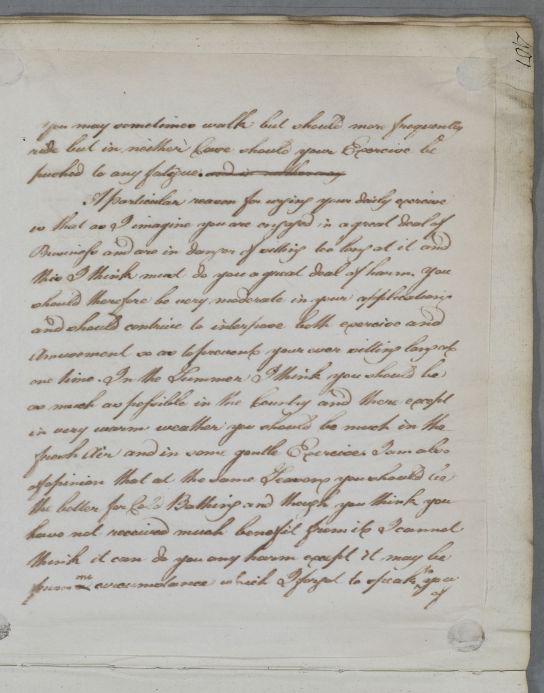 407
you may sometimes walk but should more frequently
ride but in neither Case should your Exercise be
pushed to any fatigue. and in
A particular reason for urging your daily exercise
is that as I imagine you are engaged in a great deal of
Business and are in danger of sitting too long at it and
this I think must do you a great deal of harm. You
should therefore be very moderate in your applications
and should contrive to interpose both exercise and
Amusement so as to prevent your ever sitting long at
one time. In the Summer I think you should be
as much as possible in the Country and there except
in very warm weather you should be much in the
fresh Air and in some gentle Exercise. I am also
of opinion that at the same Season you should be
the better for Cold Bathing and though you think you
have not received much benefit from it I cannot
think it can do you any harm except it may be
from one circumstance which I forgot to speak to you
of